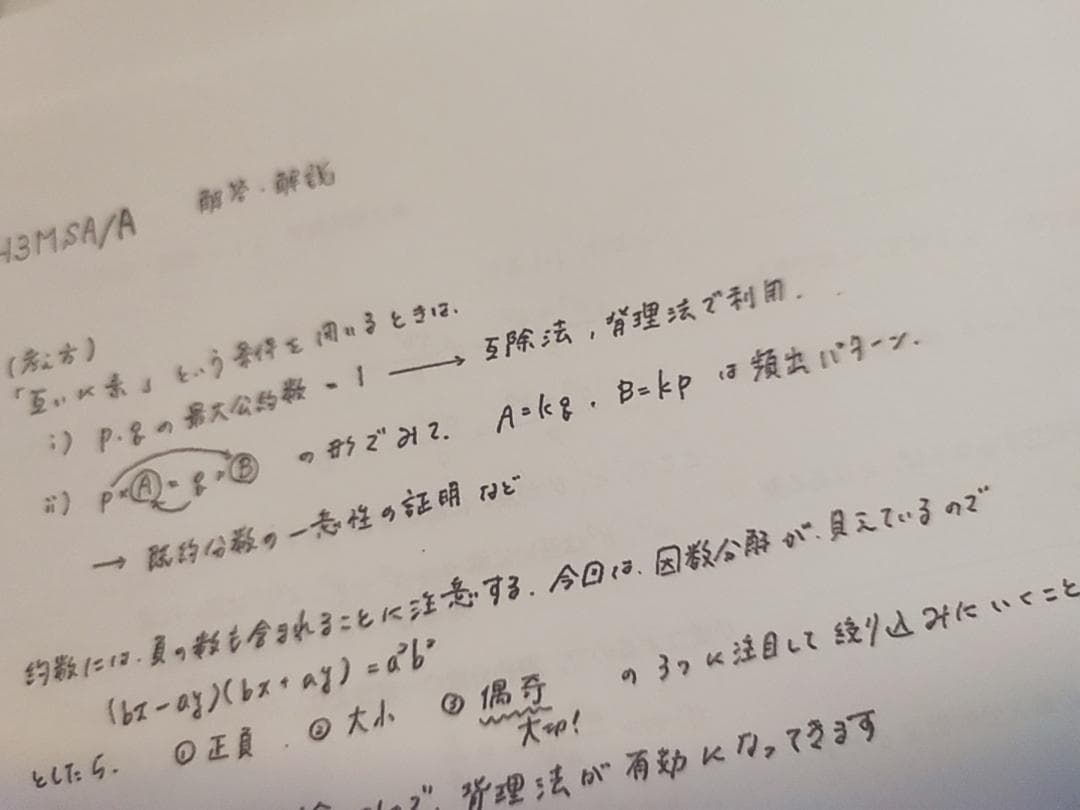 H3MSA/A 解答・解説
(考え方)
「互いに素」という条件を用いるときは、
i) p,qの最大公約数=1 → 互除法,背理法で利用.
ii) p×Ⓐ=q×Ⓑ の形でみて、A=kq,B=kp は頻出パターン.
→ 既約分数の一意性の証明など
約数には、負の数も含まれることに注意する.今回は、因数分解が見えているので
(bx-ay)(bx+ay)=a²b²
としたら、 ①正負. ②大小 ③偶奇 の3つに注目して絞り込みにいくこと
大切!
背理法が有効になってきます